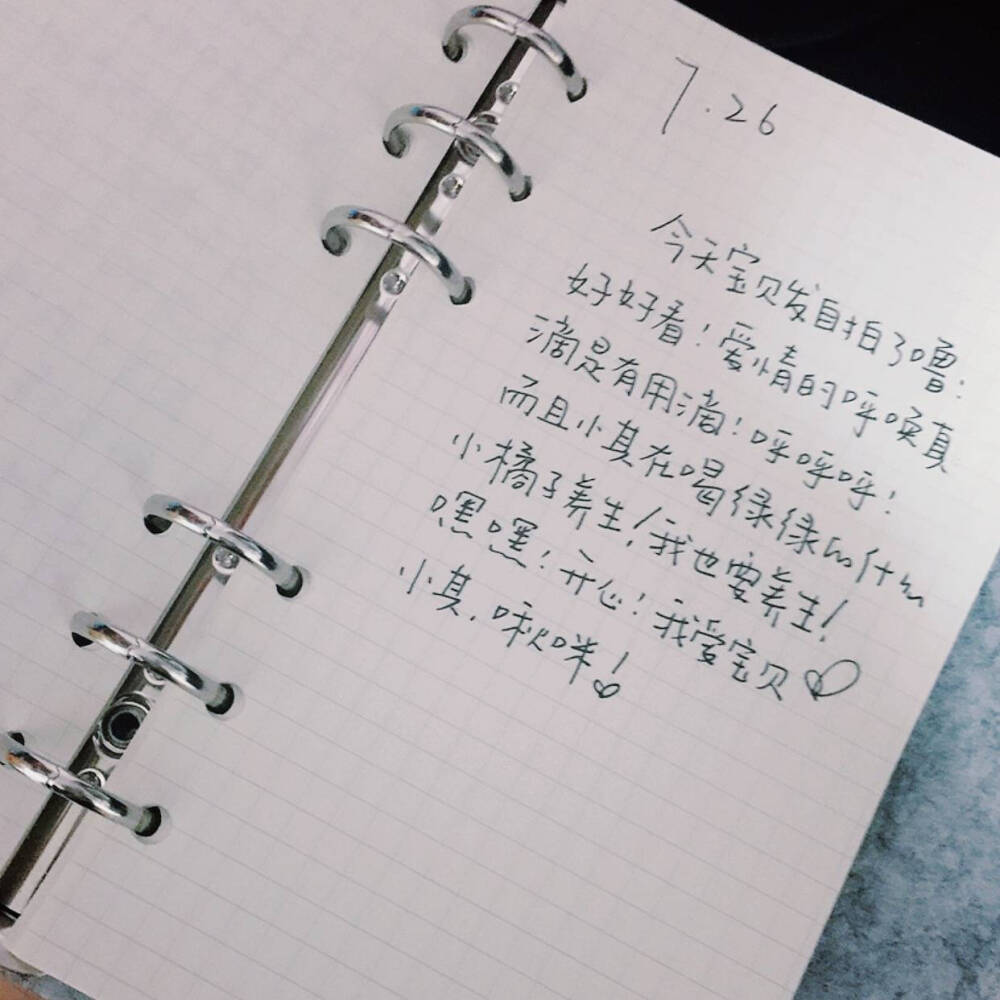 7.26
今天宝贝发自拍了噜!
好好看!爱情的呼唤真
滴是有用滴!呼呼呼!
而且小其在喝绿绿的什么
小橘子养生!我也要养生!
嘿嘿!开心!我爱宝贝
小其.啾咪!